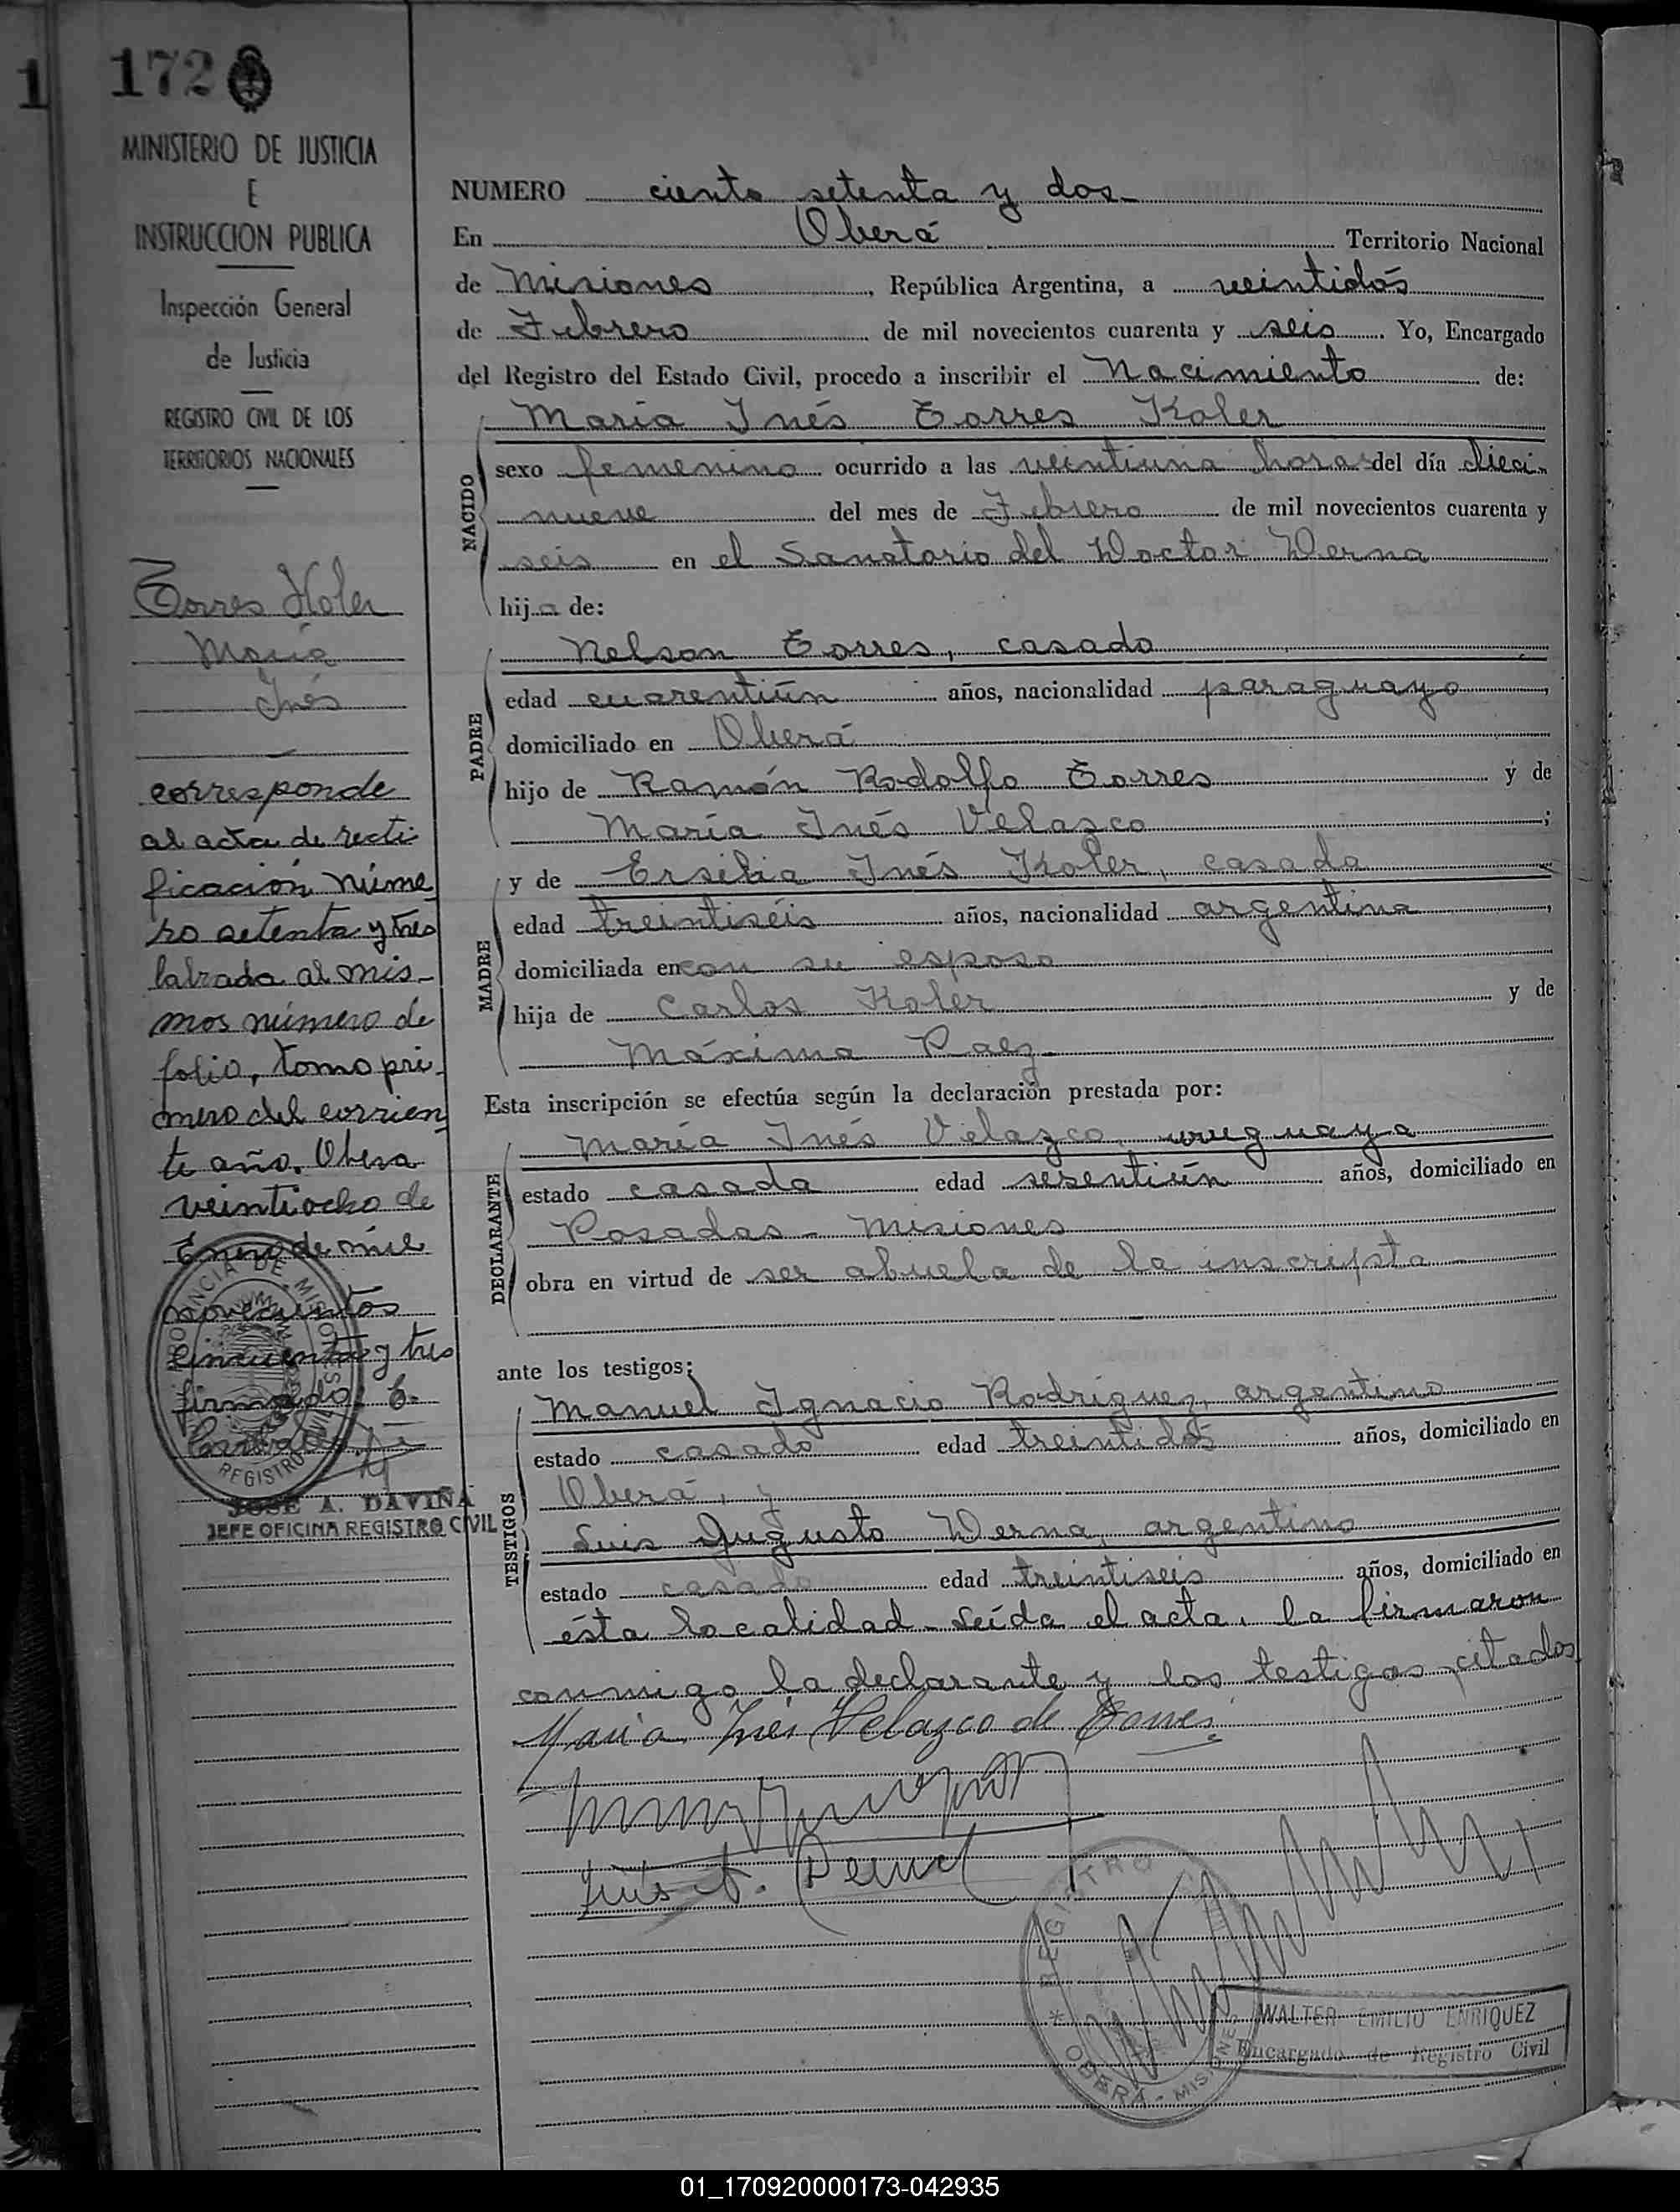 1
172
MINISTERIO DE JUSTICIA
E
INSTRUCCION PUBLICA
Inspección General
de Justicia
REGISTRO CIVIL DE LOS
TERRITORIOS NACIONALES
Torres Koler
María
Inés
corresponde
al acta de recti
ficación núme
ro setenta y tres
labrada al mis-
mos número de
folio, tomo pri-
mero del corrien
te año. Obera
veintiocho de
Enero de mil
novecientos
cincuenta y tres
firmado:
JOSE A. DAVIÑA
JEFE OFICINA REGISTRO CIVIL
NUMERO ciento setenta y dos-
En Oberá Territorio Nacional
de Misiones, República Argentina, a veintidós
de Febrero de mil novecientos cuarenta y seis. Yo, Encargado
del Registro del Estado Civil, procedo a inscribir el Nacimiento de:
NACIDO
María Inés Torres Koler
sexo femenino ocurrido a las veintiuna horas del día dieci-
nueve del mes de Febrero de mil novecientos cuarenta y
seis en el Sanatorio del Doctor Derna
hija de:
PADRE
Nelson Torres, casado
edad cuarentiún años, nacionalidad paraguayo,
domiciliado en Oberá
hijo de Ramón Rodolfo Torres y de
María Inés Velazco;
MADRE
y de Ersilia Inés Koler, casada
edad treintiséis años, nacionalidad argentina,
domiciliada en con su esposo
hija de Carlos Koler y de
Máxima Paez-
Esta inscripción se efectúa según la declaración prestada por:
DECLARANTE
María Inés Velazco, uruguaya
estado casada edad sesentiún años, domiciliado en
Posadas - Misiones
obra en virtud de ser abuela de la inscripta
ante los testigos:
TESTIGOS
Manuel Ignacio Rodríguez, argentino
estado casado edad treintidós años, domiciliado en
Oberá, y
Luis Augusto Derna, argentino
estado casado edad treintiseis años, domiciliado en
ésta localidad - Leída el acta, la firmaron
conmigo la declarante y los testigos citados
María Inés Velazco de Torres
Luis A. Derna
REGISTRO
OBERA - MISIONES
WALTER EMILIO ENRIQUEZ
Encargado de Registro Civil
01_170920000173-042935